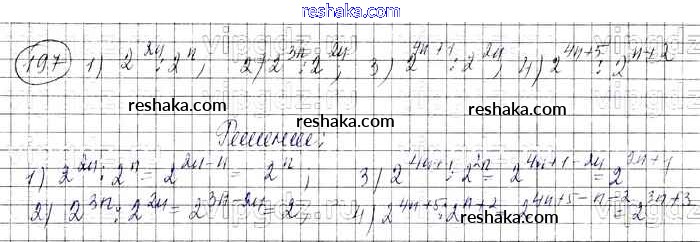 reshaka.com
197 1) 2^{2n} : 2^n, 2) 2^{3n} : 2^{2n}, 3) 2^{4n+1} : 2^{2n}, 4) 2^{4n+5} : 2^{n+2}
reshaka.com reshaka.com
Решение:
1) 2^{2n} : 2^n = 2^{2n-n} = 2^n, 3) 2^{4n+1} : 2^{2n} = 2^{4n+1-2n} = 2^{2n+1}
2) 2^{3n} : 2^{2n} = 2^{3n-2n} = 2^n, 4) 2^{4n+5} : 2^{n+2} = 2^{4n+5-n-2} = 2^{3n+3}
reshaka.com